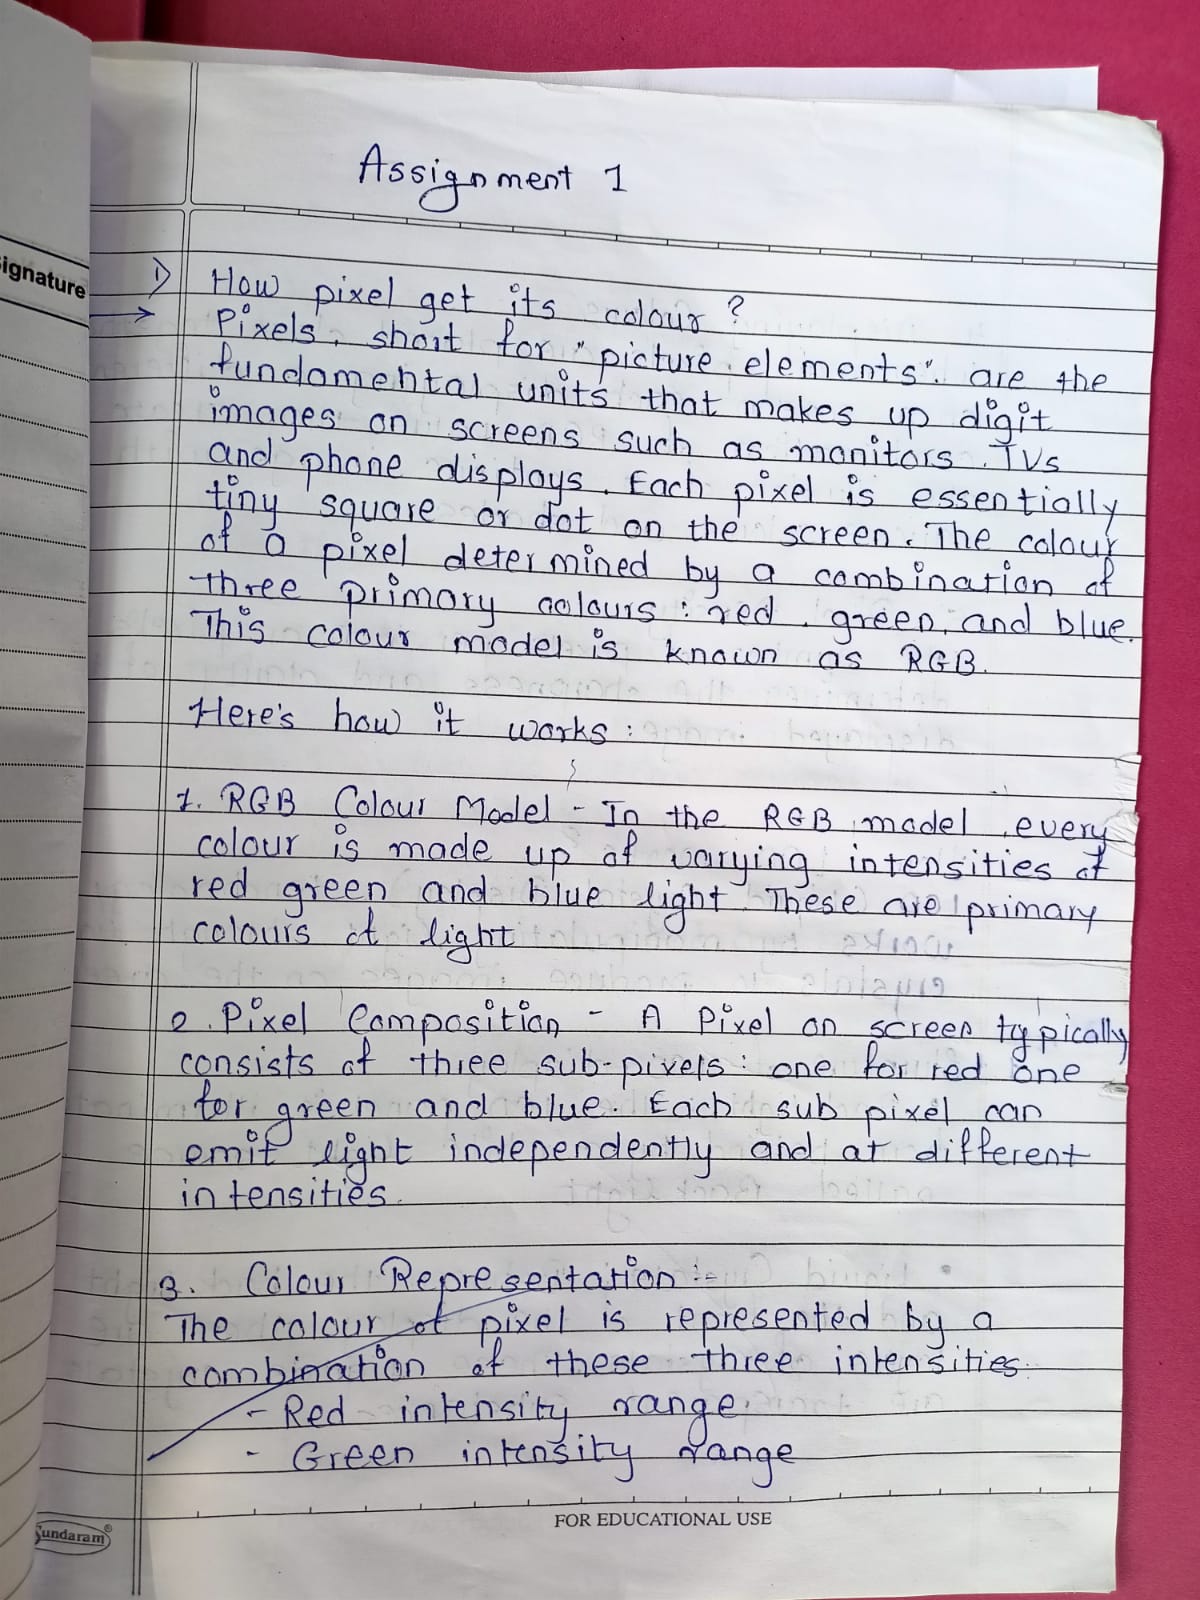 Assignment 1
ignature
1) How pixel get its colour ?
Pixels, short for "picture elements". are the
fundamental units that makes up digit
images on screens such as monitors, TVs
and phone displays. Each pixel is essentially
tiny square or dot on the screen. The colour
of a pixel determined by a combination of
three primary colours : red, green, and blue.
This colour model is known as RGB.
Here's how it works :
1. RGB Colour Model - In the RGB model, every
colour is made up of varying intensities of
red green and blue light. These are primary
colours of light
2. Pixel Composition - A Pixel on screen typically
consists of three sub-pixels: one for red one
for green and blue. Each sub pixel can
emit light independently and at different
intensities.
3. Colour Representation :-
The colour of pixel is represented by a
combination of these three intensities.
- Red intensity range.
- Green intensity range
FOR EDUCATIONAL USE
Sundaram®